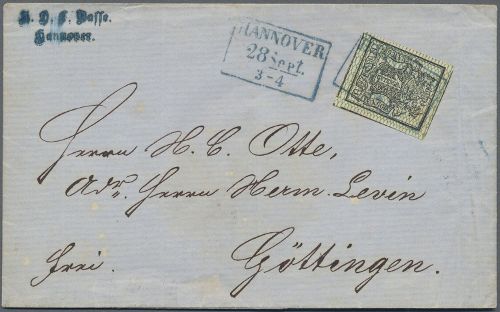 Hannover.
HANNOVER
28 Sept.
3-4
Herrn H. C. Otte,
Adr. Herrn Herm. Levin
frei.
Göttingen.